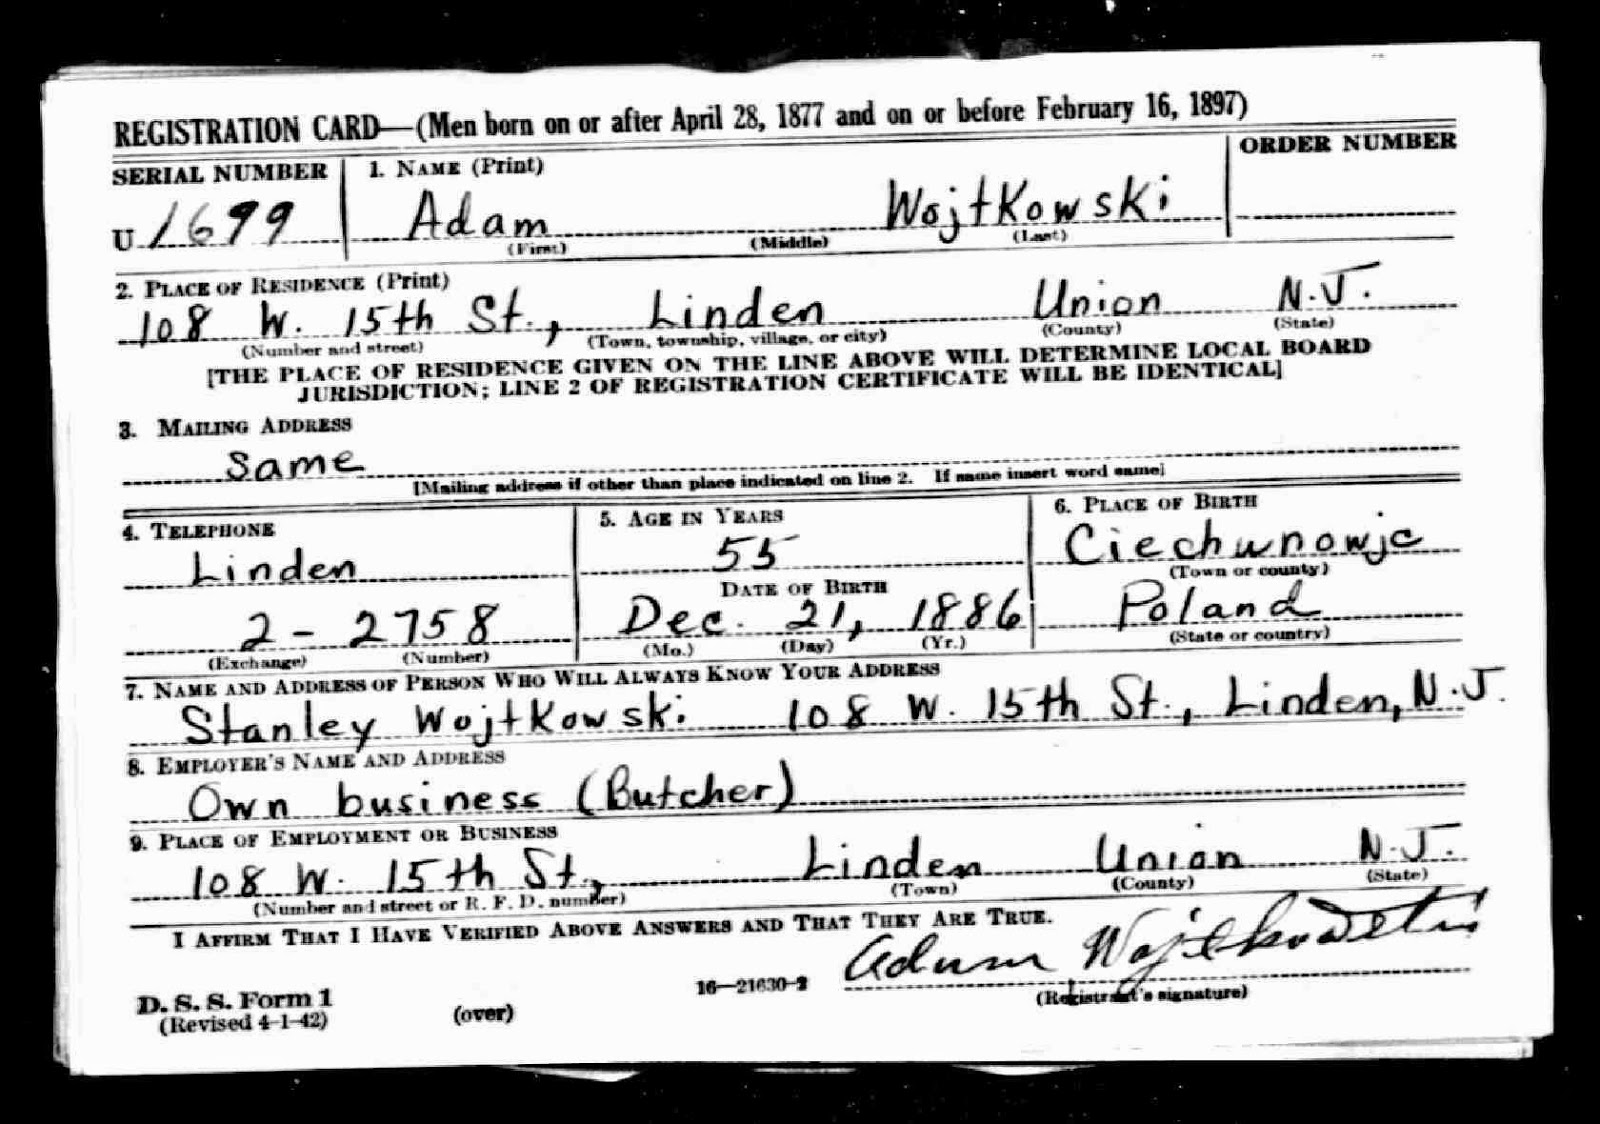 REGISTRATION CARD—(Men born on or after April 28, 1877 and on or before February 16, 1897)
SERIAL NUMBER 1. NAME (Print) ORDER NUMBER
U 1699 Adam Wojtkowski
(First) (Middle) (Last)
2. PLACE OF RESIDENCE (Print)
108 W. 15th St., Linden Union N.J.
(Number and street) (Town, township, village, or city) (County) (State)
[THE PLACE OF RESIDENCE GIVEN ON THE LINE ABOVE WILL DETERMINE LOCAL BOARD
JURISDICTION; LINE 2 OF REGISTRATION CERTIFICATE WILL BE IDENTICAL]
3. MAILING ADDRESS
Same
[Mailing address if other than place indicated on line 2. If same insert word same]
4. TELEPHONE 5. AGE IN YEARS 6. PLACE OF BIRTH
Linden 55 Ciechunowjc
DATE OF BIRTH (Town or county)
2 - 2758 Dec. 21, 1886 Poland
(Exchange) (Number) (Mo.) (Day) (Yr.) (State or country)
7. NAME AND ADDRESS OF PERSON WHO WILL ALWAYS KNOW YOUR ADDRESS
Stanley Wojtkowski 108 W. 15th St., Linden, N.J.
8. EMPLOYER'S NAME AND ADDRESS
Own business (Butcher)
9. PLACE OF EMPLOYMENT OR BUSINESS
108 W. 15th St., Linden Union N.J.
(Number and street or R. F. D. number) (Town) (County) (State)
I AFFIRM THAT I HAVE VERIFIED ABOVE ANSWERS AND THAT THEY ARE TRUE.
Adam Wojtkowski
D. S. S. Form 1 16—21630-2 (Registrant's signature)
(Revised 4-1-42) (over)